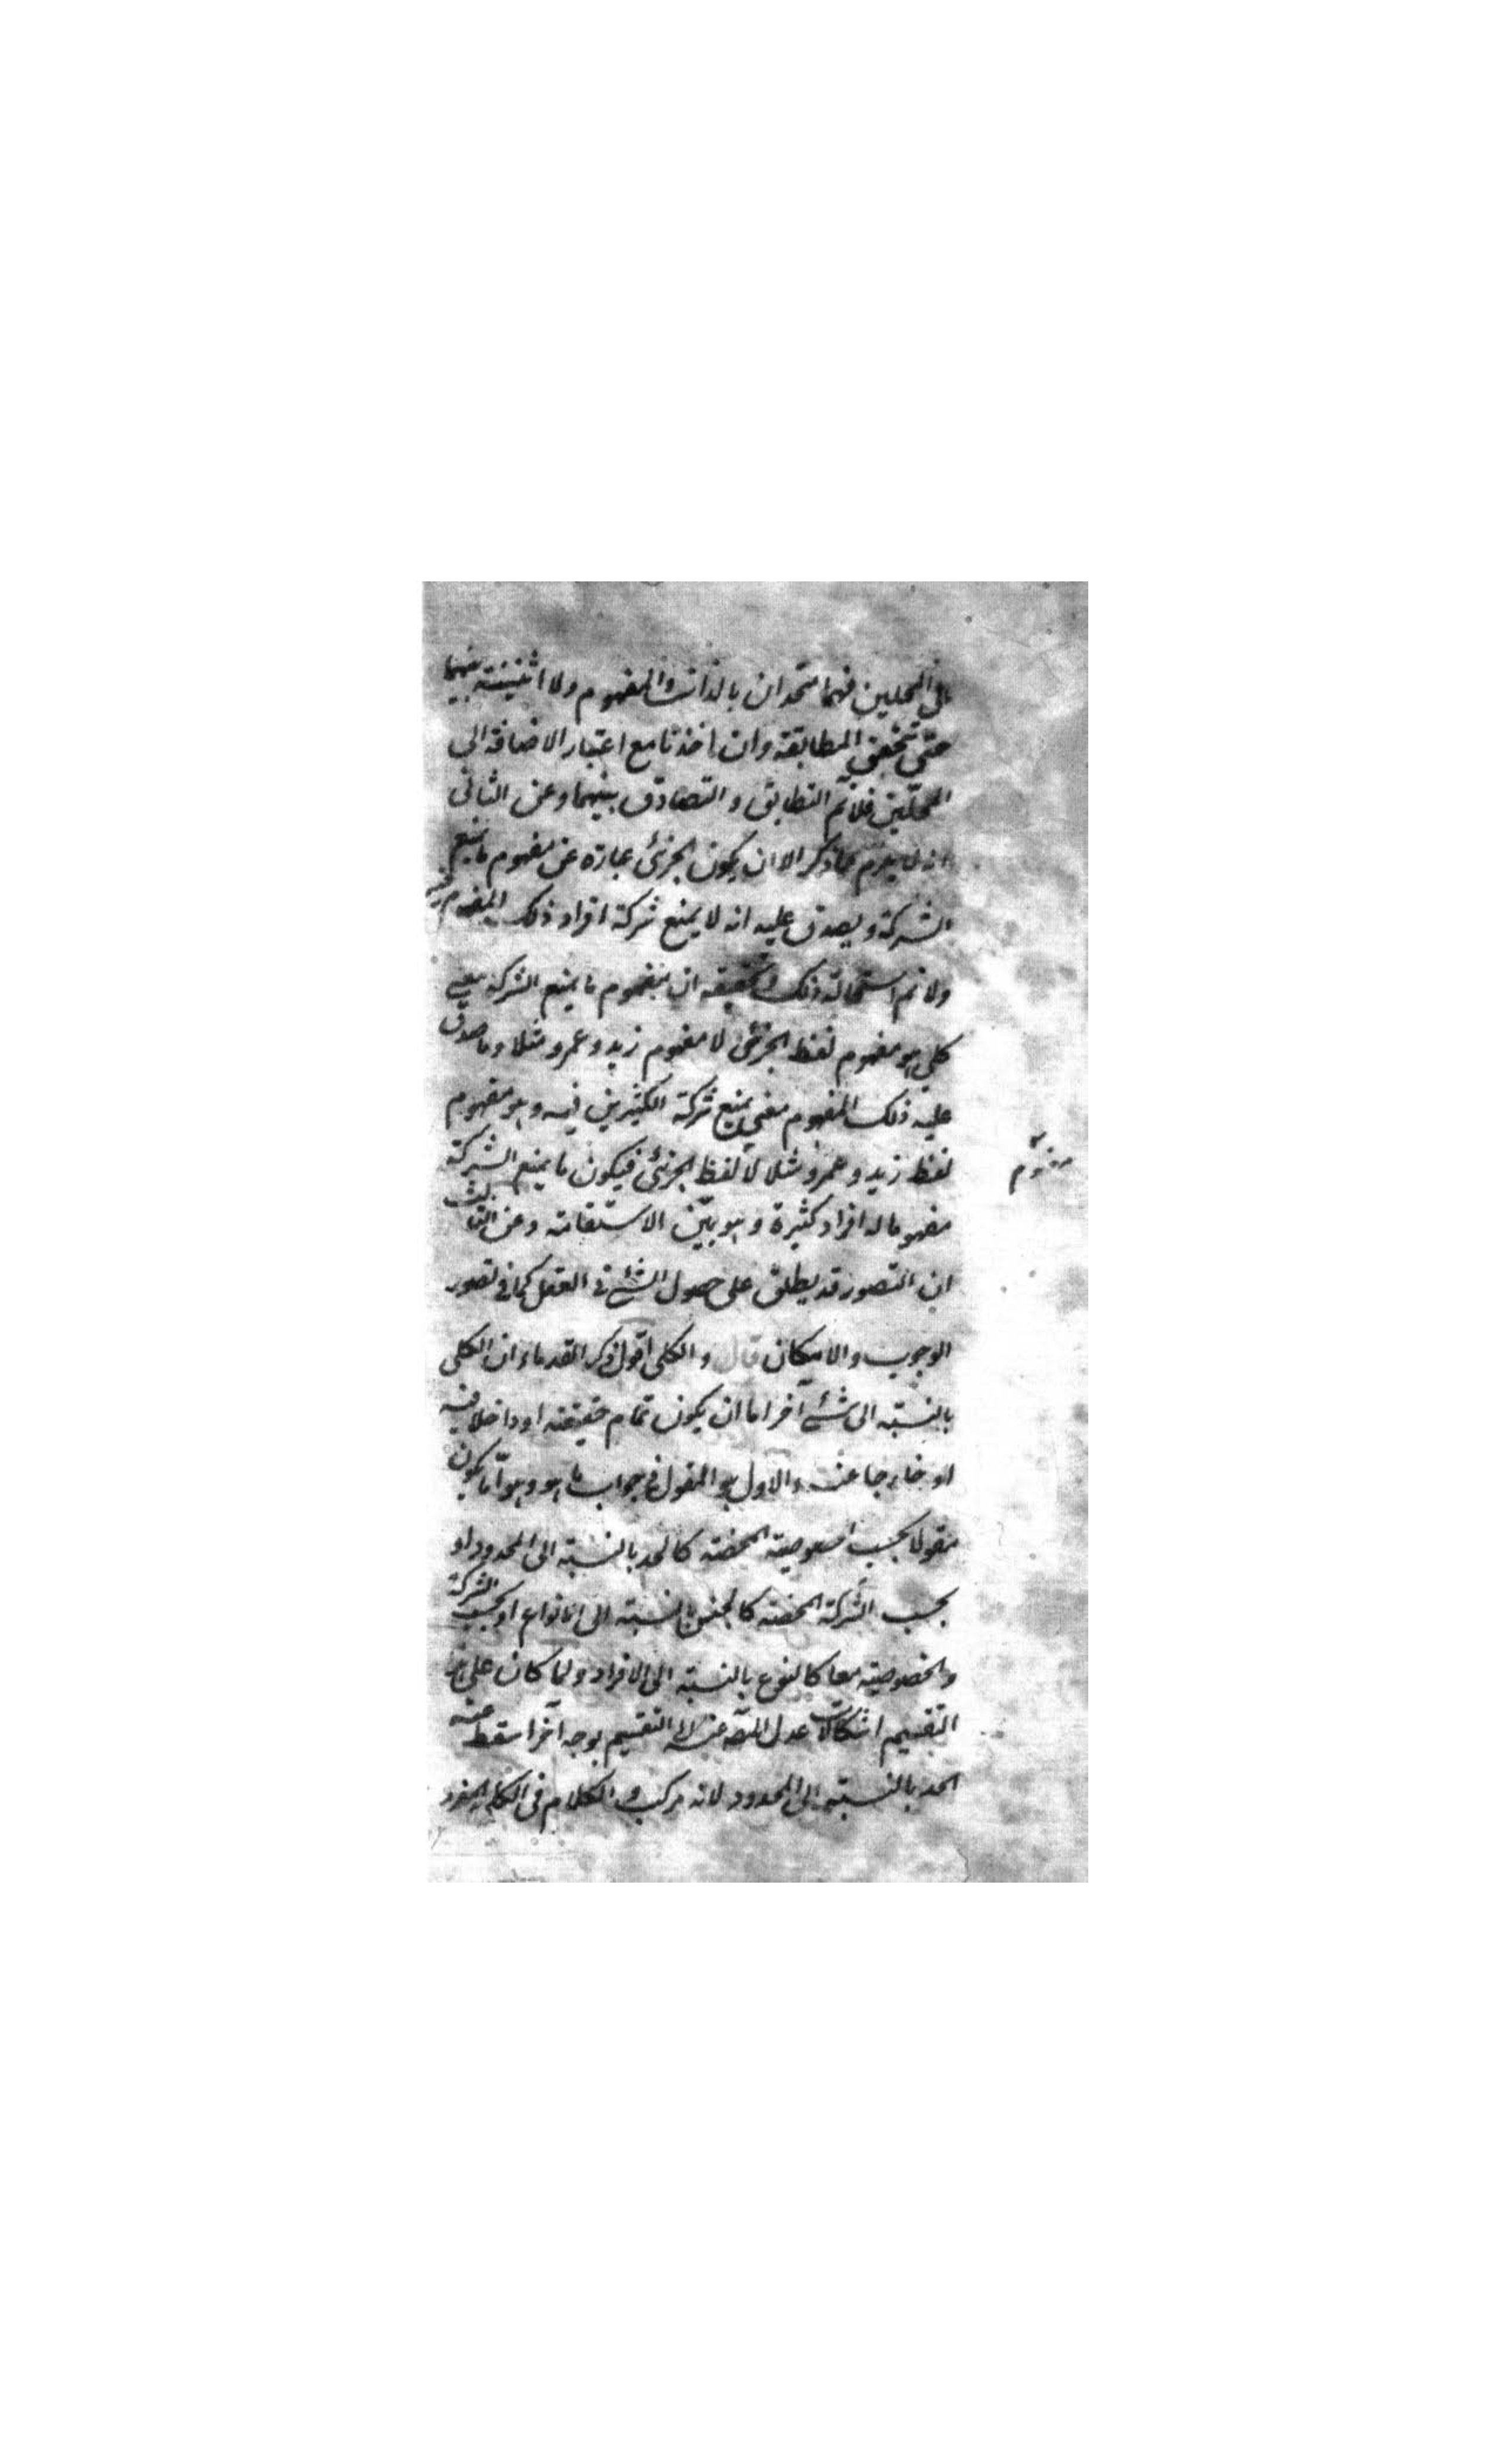 الى المحلين فهما متحدان بالذات والمفهوم ولا اثنينية بينهما
حتى تتحقق المطابقة وان اخذتا مع اعتبار الاضافة الى
المحلين فلانم التطابق والتصادق بينهما وعن الثانى
انه لا يلزم مما ذكر الا ان يكون الجزئى عبارة عن مفهوم ما يمنع
الشركة ويصدق عليه انه لا يمنع شركة افراد ذلك المفهوم فيه
ولانم استحالة ذلك وتحقيقه ان مفهوم ما يمنع الشركة معنى
كلى هو مفهوم لفظ الجزئى لا مفهوم زيد وعمرو مثلا وما صدق
عليه ذلك المفهوم معنى يمنع شركة الكثيرين فيه وهو مفهوم
لفظ زيد وعمرو مثلا لا لفظ الجزئى فيكون ما يمنع الشركة
مفهوما له افراد كثيرة وهو بين الاستقامة وعن الثالث
ان التصور قد يطلق على حصول الشئ فى العقل كما فى تصور
الوجوب والامكان قال والكلى اقول ذكر القدماء ان الكلى
بالنسبة الى شئ آخر اما ان يكون تمام حقيقته او داخلا فيه
او خارجا عنه والاول هو المقول فى جواب ما هو وهو اما يكون
مقولا بحسب الخصوصية المحضة كالحد بالنسبة الى المحدود او
بحسب الشركة المحضة كالجنس بالنسبة الى الانواع او بحسب الشركة
والخصوصية معا كالنوع بالنسبة الى الافراد ولما كان على
التقسيم اشكالات عدل المصه عنه الى التقسيم بوجه آخر اسقط عنه
الحد بالنسبة الى المحدود لانه مركب والكلام فى الكلى المفرد
مفهوم